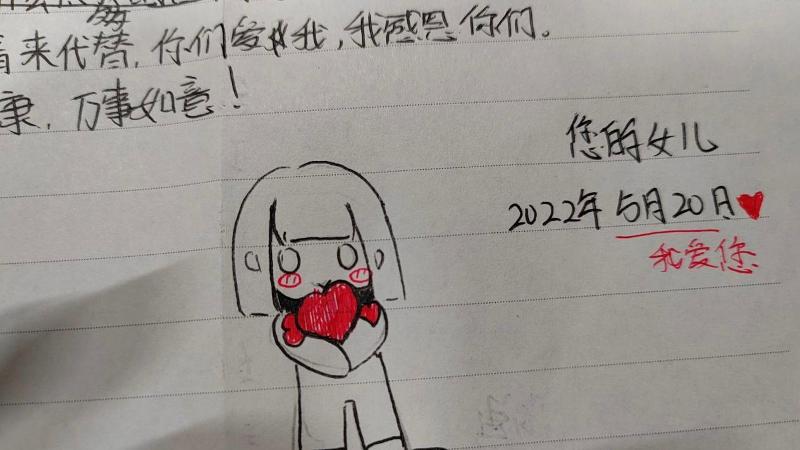 来代替,你们爱我,我感恩你们。
康,万事如意!
您的女儿
2022年5月20日
我爱您